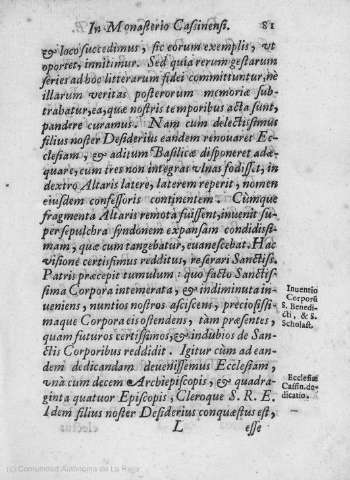 In Monasterio Cassinensi. 81
& loco succedimus, sic eorum exemplis, vt
oportet, innitimur. Sed quia rerum gestarum
series ad hoc litterarum fidei committuntur, ne
illarum veritas posterorum memoriæ sub-
trabatur, ea, quæ nostris temporibus acta sunt,
pandere curamus. Nam cum delectissimus
filius noster Desiderius eandem renouaret Ec-
clesiam, & aditum Basilicæ disponeret adæ-
quare, cum tres non integras vlnas fodisset, in
dextro Altaris latere, laterem reperit, nomen
eiusdem confessoris continentem. Cùmque
fragmenta Altaris remota fuissent, inuenit su-
per sepulchra syndonem expansam condidissi-
mam, quæ cum tangebatur, euanescebat. Hac
visione certissimus redditus, reserari Sanctiss.
Patris præcepit tumulum: quo facto Sanctis-
sima Corpora intemerata, & indiminuta in-
ueniens, nuntios nostros asciscens, preciosissi-
maque Corpora eis ostendens, tàm præsentes,
quam futuros certissimos, & indubios de San-
ctis Corporibus reddidit. Igitur cùm ad ean-
dem dedicandam deuenissemus Ecclesiam,
vnà cum decem Archiepiscopis, & quadra-
ginta quatuor Episcopis, Cleroque S. R. E.
Idem filius noster Desiderius conquæstus est,
L esse
Inuentio
Corporū
S. Benedi-
cti, & S.
Scholast.
Ecclesiæ
Cassin. de-
dicatio.
(c) Comunidad Autónoma de La Rioja